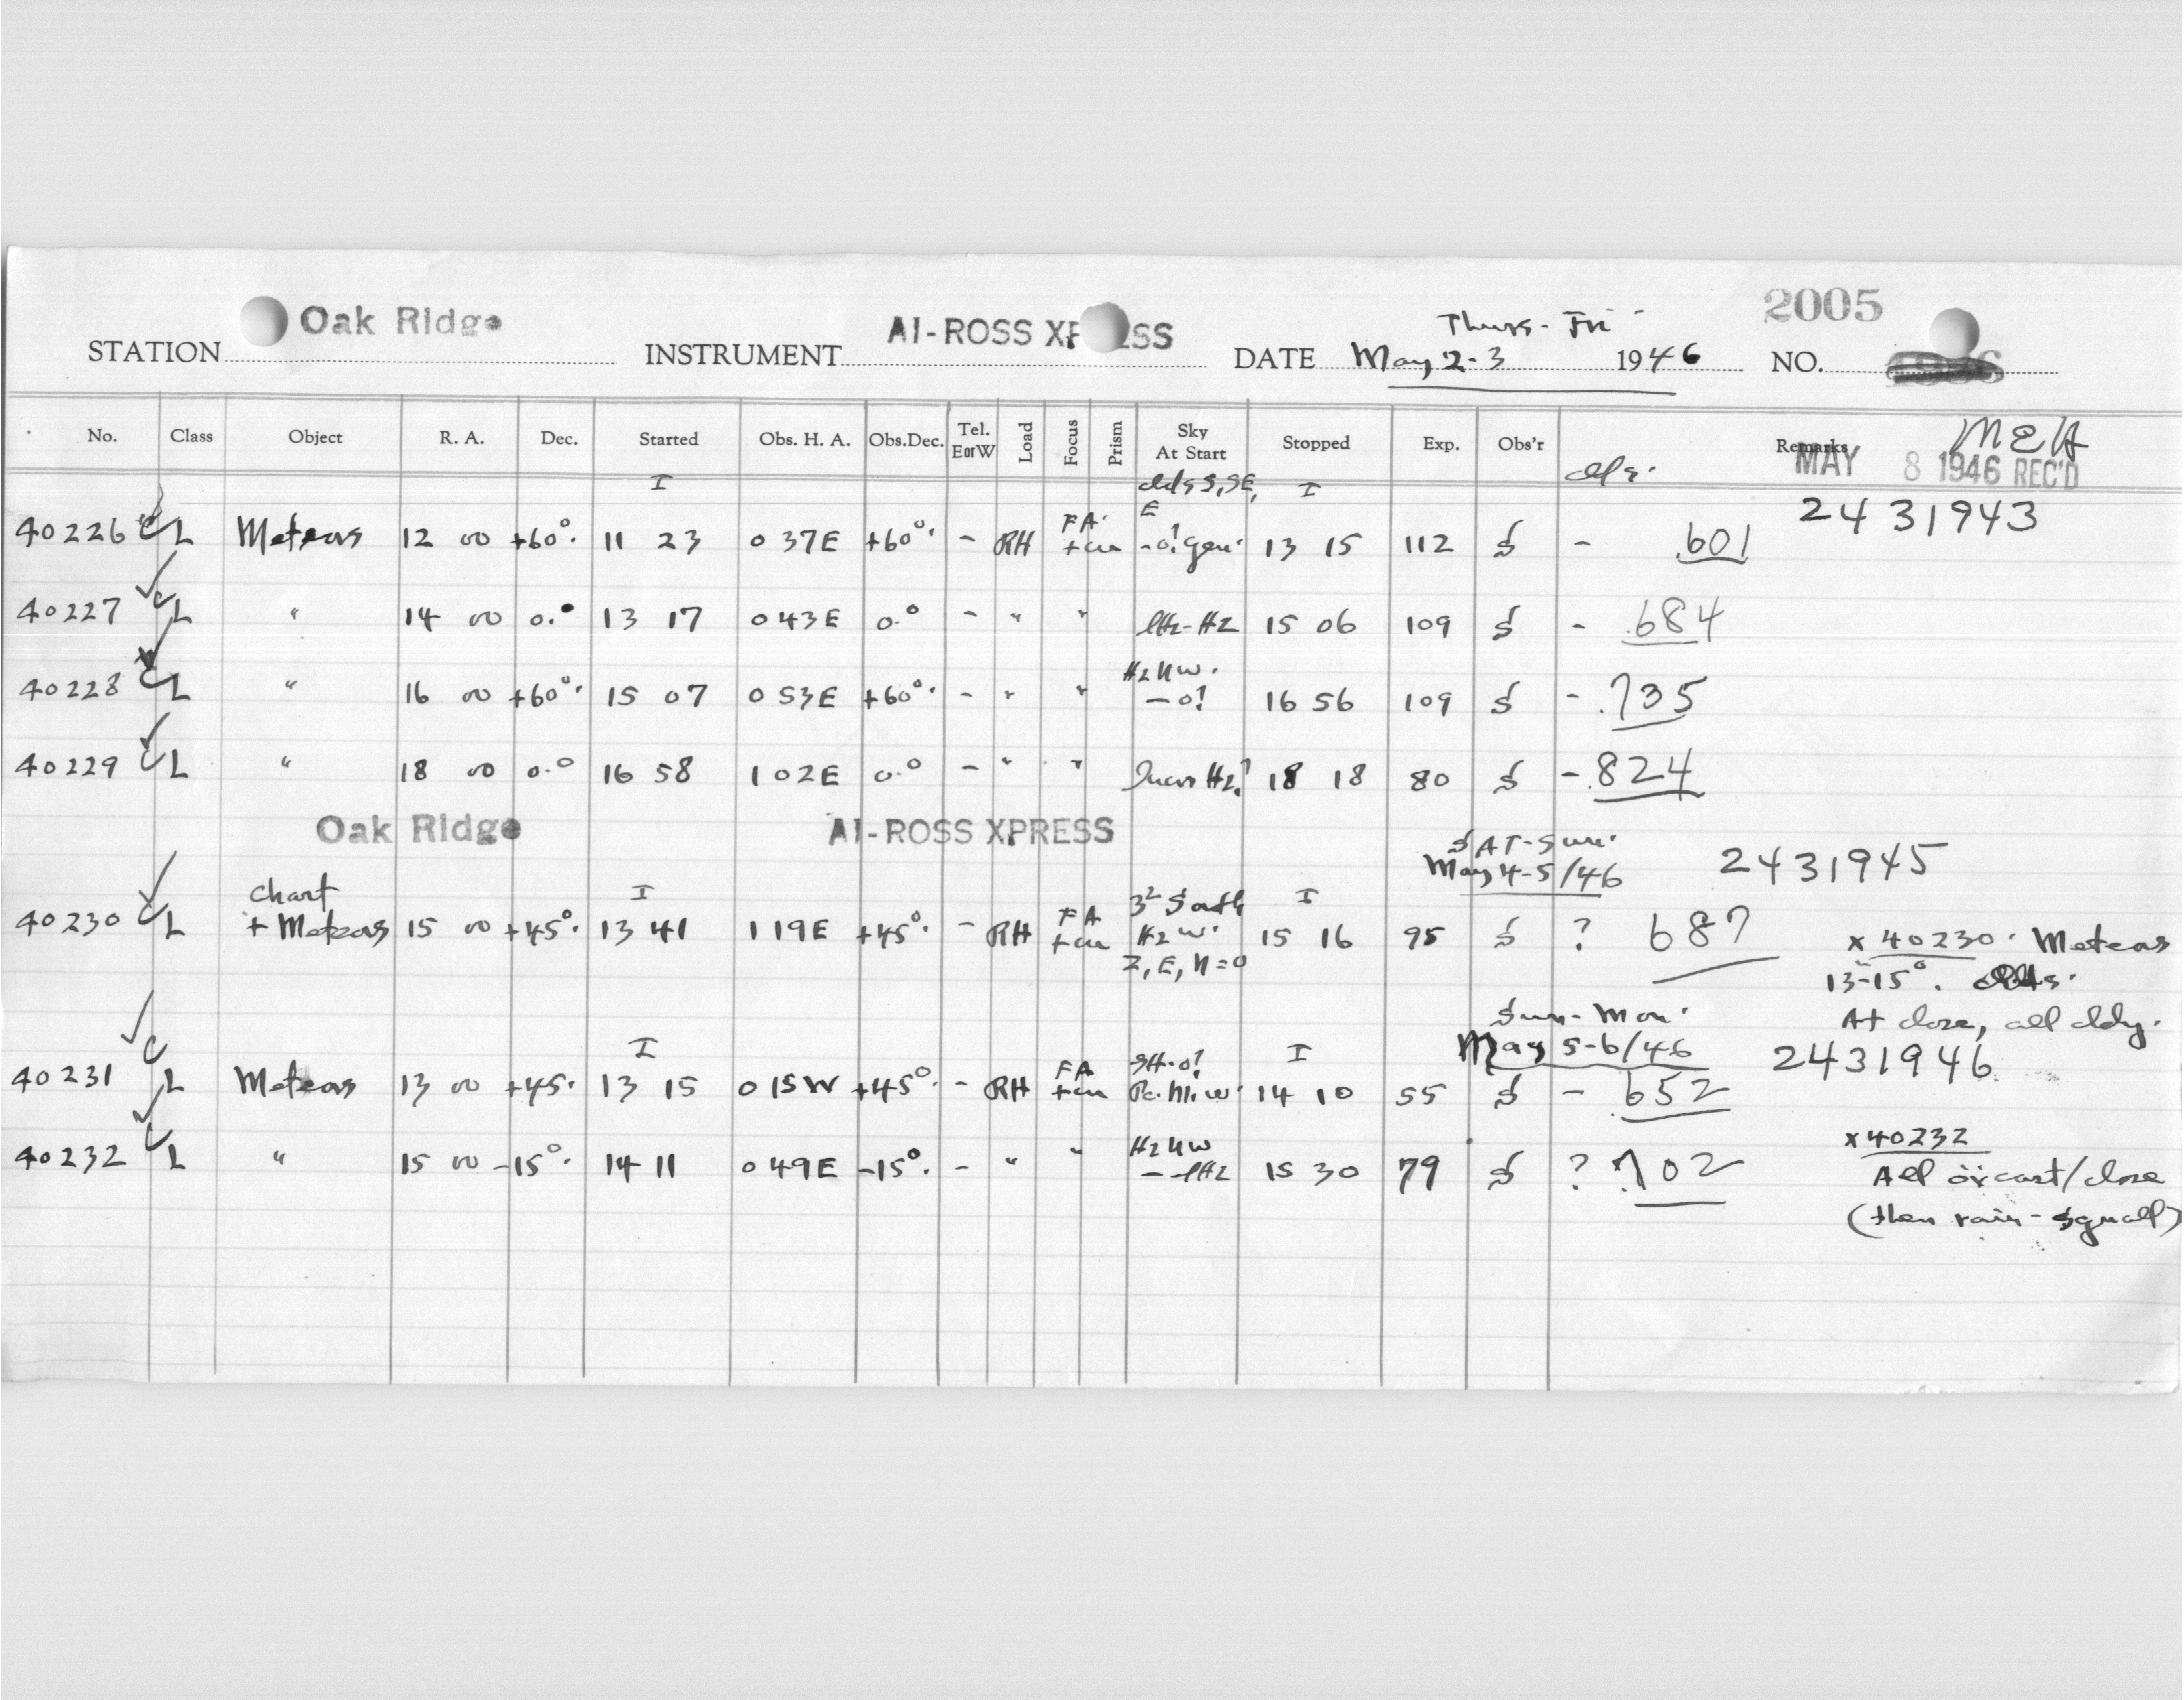 Oak Ridge AI-ROSS XPRESS Thurs - Fri 2005
STATION INSTRUMENT DATE May 2-3 1946 NO.
No. Class Object R. A. Dec. Started Obs. H. A. Obs.Dec. Tel. EorW Load Focus Prism Sky At Start Stopped Exp. Obs'r Remarks
MEH
MAY 8 1946 REC'D
I I
2431943
40226 CL Meteors 12 00 +60° 11 23 0 37E +60° - RH FA 13 15 112 S - .601
40227 CL " 14 00 0.° 13 17 0 43E 0.° - " " 15 06 109 S - .684
40228 CL " 16 00 +60° 15 07 0 53E +60° - " " Hz NW. -0! 16 56 109 S - .735
40229 CL " 18 00 0.° 16 58 1 02E 0.° - " " 18 18 80 S - .824
Oak Ridge AI-ROSS XPRESS
SAT-Sun.
May 4-5/46 2431945
Chart I I
40230 CL + Meteors 15 00 +45° 13 41 1 19E +45° - RH FA Hz W. Z, E, N=0 15 16 95 S ? 687
x 40230. Meteors
13-15°.
At close, all cldy.
Sun-Mon.
May 5-6/46 2431946
I I
40231 CL Meteors 13 00 +45. 13 15 0 15W +45° - RH FA 14 10 55 S - .652
40232 CL " 15 00 -15° 14 11 0 49E -15° - " " Hz NW 15 30 79 S ? .702
x 40232
All o'cast/close
(then rain-squall)